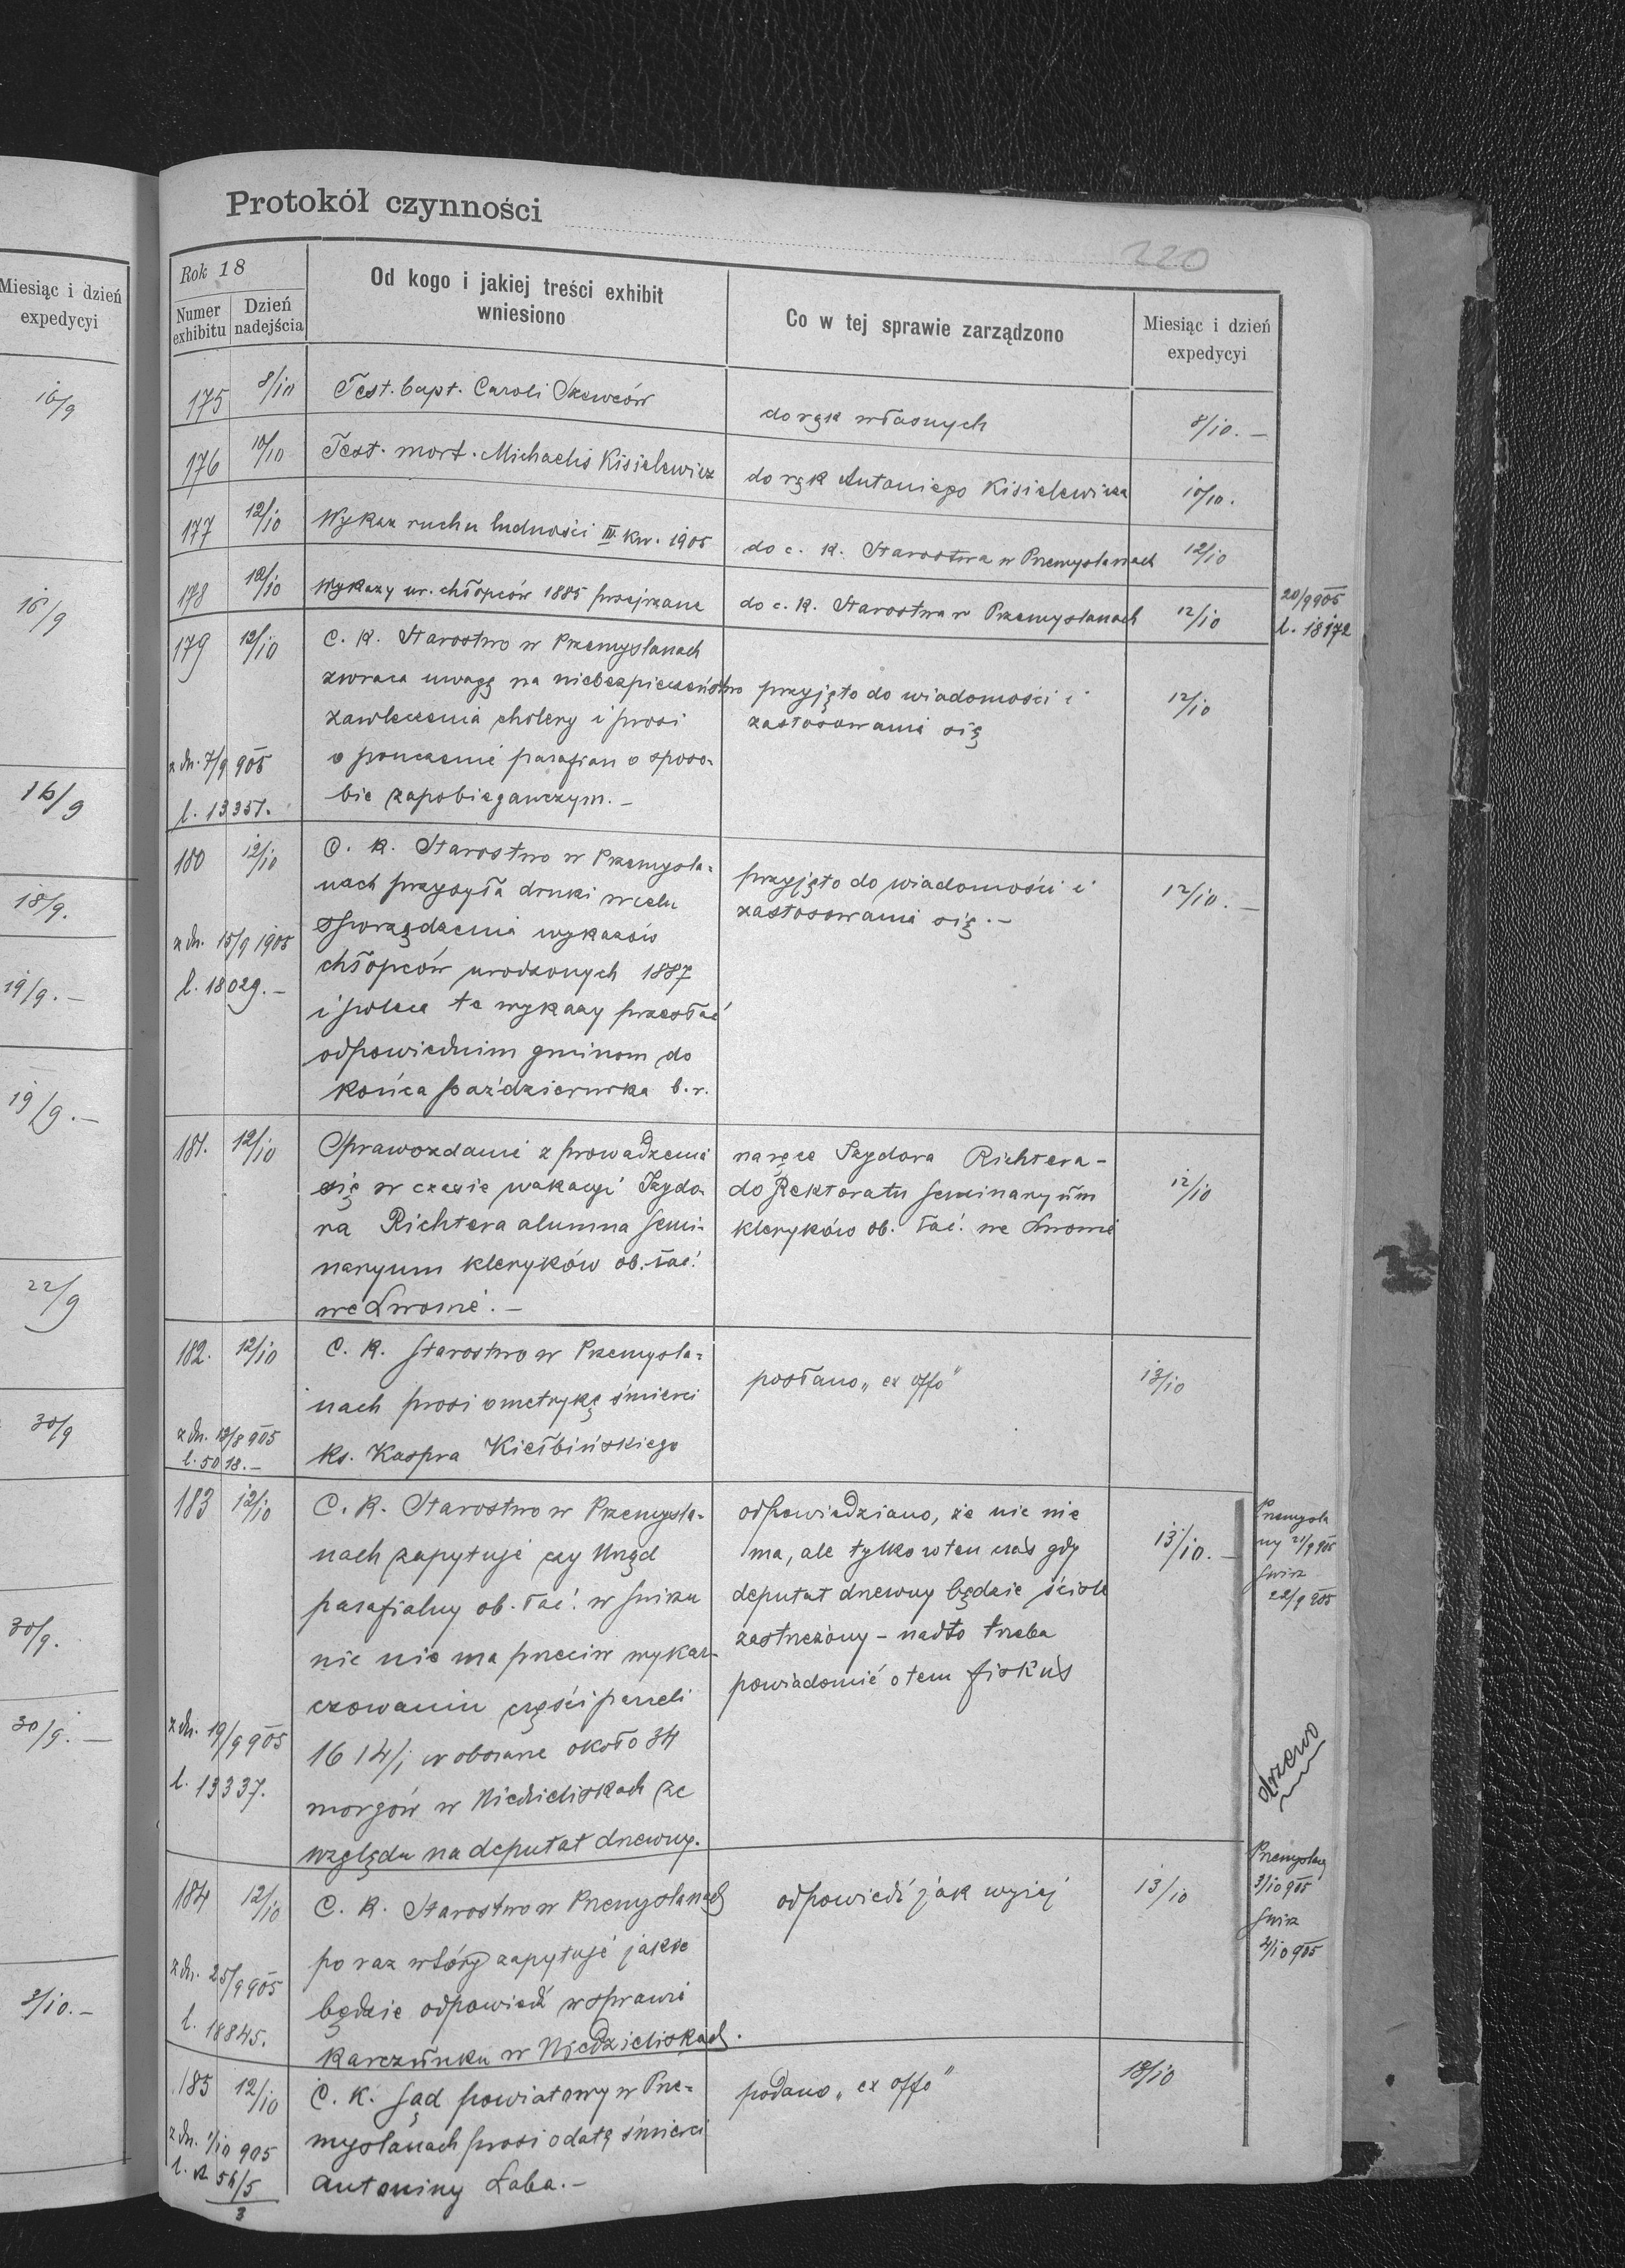 Protokół czynności
220
Miesiąc i dzień
expedycyi
16/9
16/9
16/9
18/9.
19/9. –
19/9. –
22/9
30/9
30/9.
30/9. –
3/10. –
Rok 18
Numer exhibitu
Dzień nadejścia
Od kogo i jakiej treści exhibit
wniesiono
Co w tej sprawie zarządzono
Miesiąc i dzień
expedycyi
175 8/10 Test. bapt. Caroli Szewców
do rąk własnych
8/10. –
176 10/10 Test. mort. Michaelis Kisielewicz
do rąk Antoniego Kisielewicza
10/10.
177 12/10 Wykaz ruchu ludności III kw. 1905
do c. k. Starostwa w Przemyślanach
12/10
178 12/10 Wykazy ur. chłopców 1885 przejrzane
do c. k. Starostwa w Przemyślanach
12/10
20/9 905
l. 18172
179 12/10 C. K. Starostwo w Przemyślanach
zwraca uwagę na niebezpieczeństwo
zawleczenia cholery i prosi
z dn. 7/9 905 o pouczenie parafian o sposo-
l. 13351. bie zapobiegawczym. –
przyjęto do wiadomości i
zastosowania się
12/10
180 12/10 C. K. Starostwo w Przemyśla-
nach przysyła druki w celu
z dn. 15/9 1905 sporządzenia wykazów
l. 18029. – chłopców urodzonych 1887
i poleca te wykazy przesłać
odpowiednim gminom do
końca października b. r.
przyjęto do wiadomości i
zastosowania się. –
12/10. –
181. 12/10 Sprawozdanie z prowadzenia
się w czasie wakacyi Izydo-
ra Richtera alumna semi-
naryum kleryków ob. łać.
we Lwowie. –
na ręce Izydora Richtera –
do Rektoratu seminaryum
kleryków ob. łać. we Lwowie
12/10
182. 12/10 C. K. Starostwo w Przemyśla-
nach prosi o metrykę śmierci
z dn. 12/8 905 ks. Kaspra Kiełbińskiego
l. 5018. –
posłano „ex offo"
13/10
183 12/10 C. K. Starostwo w Przemyśla-
nach zapytuje czy Urząd
parafialny ob. łać. w Świrzu
nic nie ma przeciw wykar-
czowaniu części parceli
z dn. 19/9 905 1614/1 w obszarze około 34
l. 13337. morgów w Niedzieliskach ze
względu na deputat drzewny.
odpowiedziano, że nic nie
ma, ale tylko w ten czas gdy
deputat drzewny będzie ściśle
zastrzeżony – nadto trzeba
powiadomić o tem fiskus
13/10. –
Przemyśla
ny 21/9 905
Świrz
22/9 905
drzewo
184 12/10 C. K. Starostwo w Przemyślanach
po raz wtóry zapytuje jakie
z dn. 25/9 905 będzie odpowiedź w sprawie
l. 18845. karczunku w Niedzieliskach.
odpowiedź jak wyżej
13/10
Przemyślany
3/10 905
Świrz
4/10 905
185 12/10 C. K. Sąd powiatowy w Prze-
z dn. 1/10 905 myślanach prosi o datę śmierci
56/5 Antoniny Łaba. –
3
podano „ex offo"
13/10